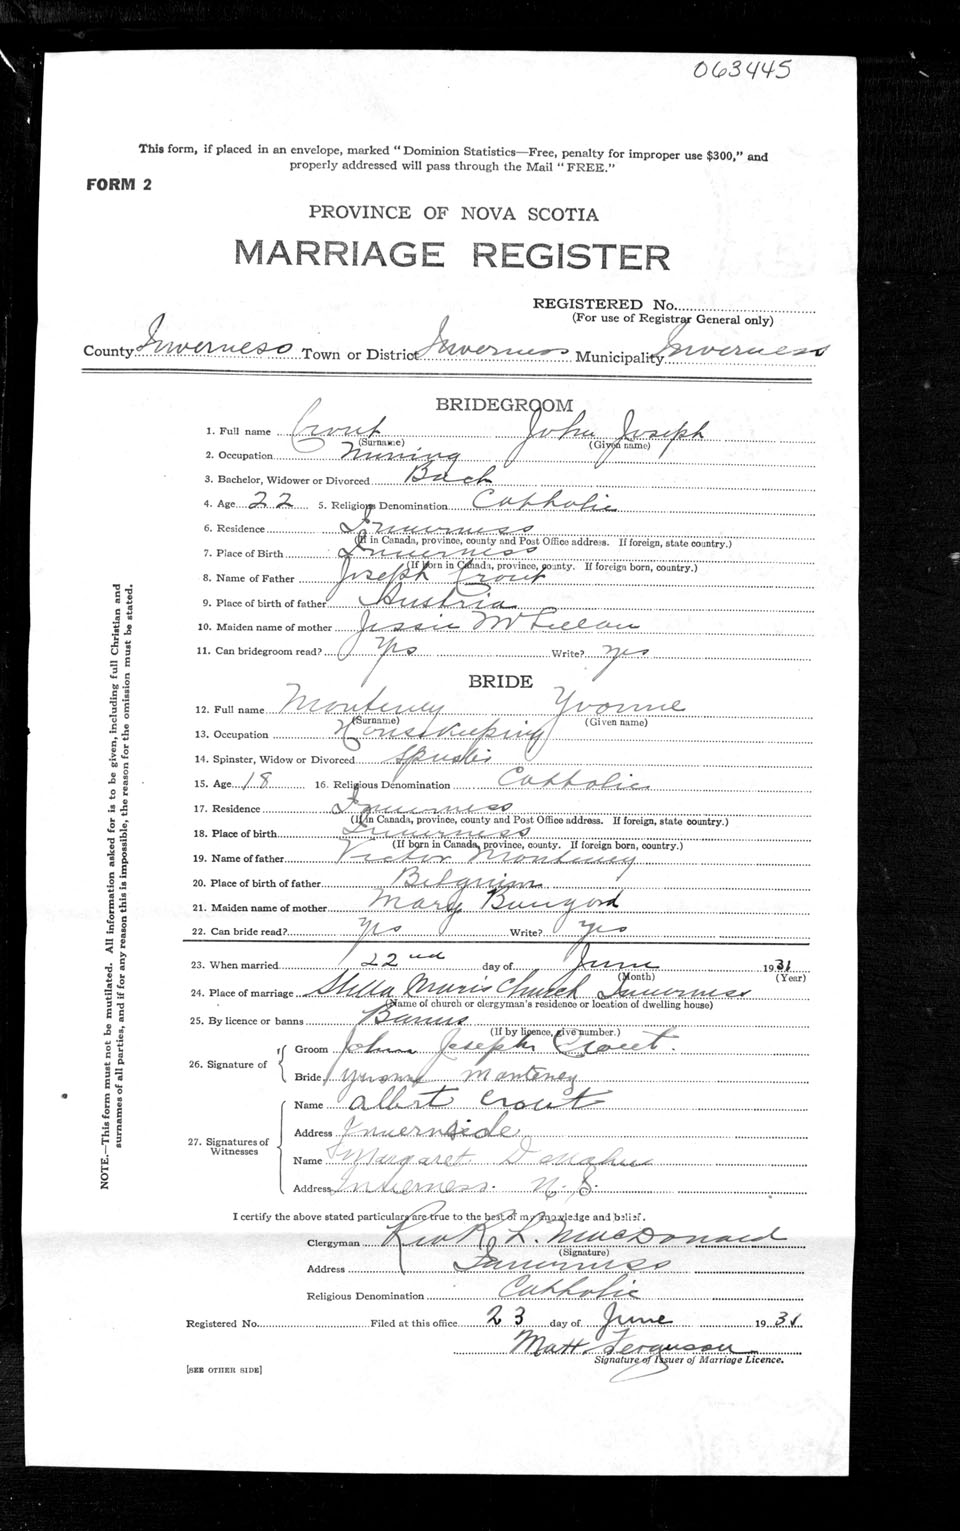 063445
This form, if placed in an envelope, marked "Dominion Statistics—Free, penalty for improper use $300," and
properly addressed will pass through the Mail "FREE."
FORM 2
PROVINCE OF NOVA SCOTIA
MARRIAGE REGISTER
REGISTERED No.
(For use of Registrar General only)
County Inverness Town or District Inverness Municipality Inverness
BRIDEGROOM
1. Full name Crout John Joseph
(Surname) (Given name)
2. Occupation Mining
3. Bachelor, Widower or Divorced Bach
4. Age 22 5. Religious Denomination Catholic
6. Residence Inverness
(If in Canada, province, county and Post Office address. If foreign, state country.)
7. Place of Birth Inverness
(If born in Canada, province, county. If foreign born, country.)
8. Name of Father Joseph Crout
9. Place of birth of father Austria
10. Maiden name of mother Jessie
11. Can bridegroom read? Yes Write? yes
BRIDE
12. Full name Monteney Yvonne
(Surname) (Given name)
13. Occupation Housekeeping
14. Spinster, Widow or Divorced
15. Age 18 16. Religious Denomination Catholic
17. Residence Inverness
(If in Canada, province, county and Post Office address. If foreign, state country.)
18. Place of birth Inverness
(If born in Canada, province, county. If foreign born, country.)
19. Name of father Victor Monteney
20. Place of birth of father Belgium
21. Maiden name of mother Mary
22. Can bride read? Yes Write? yes
23. When married 22nd day of June 1931
(Month) (Year)
24. Place of marriage Stella Maris Church Inverness
(Name of church or clergyman's residence or location of dwelling house)
25. By licence or banns Banns
(If by licence, give number.)
26. Signature of Groom John Joseph Crout.
Bride Yvonne Monteney
27. Signatures of Witnesses
Name Albert Crout
Address Inverside
Name Margaret Donahue
Address Inverness. N. S.
I certify the above stated particulars are true to the best of my knowledge and belief.
Clergyman Rev R. L. MacDonald
(Signature)
Address Inverness
Religious Denomination Catholic
Registered No. Filed at this office 23 day of June 1931
Matt Ferguson
Signature of Issuer of Marriage Licence.
[SEE OTHER SIDE]
NOTE.—This form must not be mutilated. All information asked for is to be given, including full Christian and
surnames of all parties, and if for any reason this is impossible, the reason for the omission must be stated.